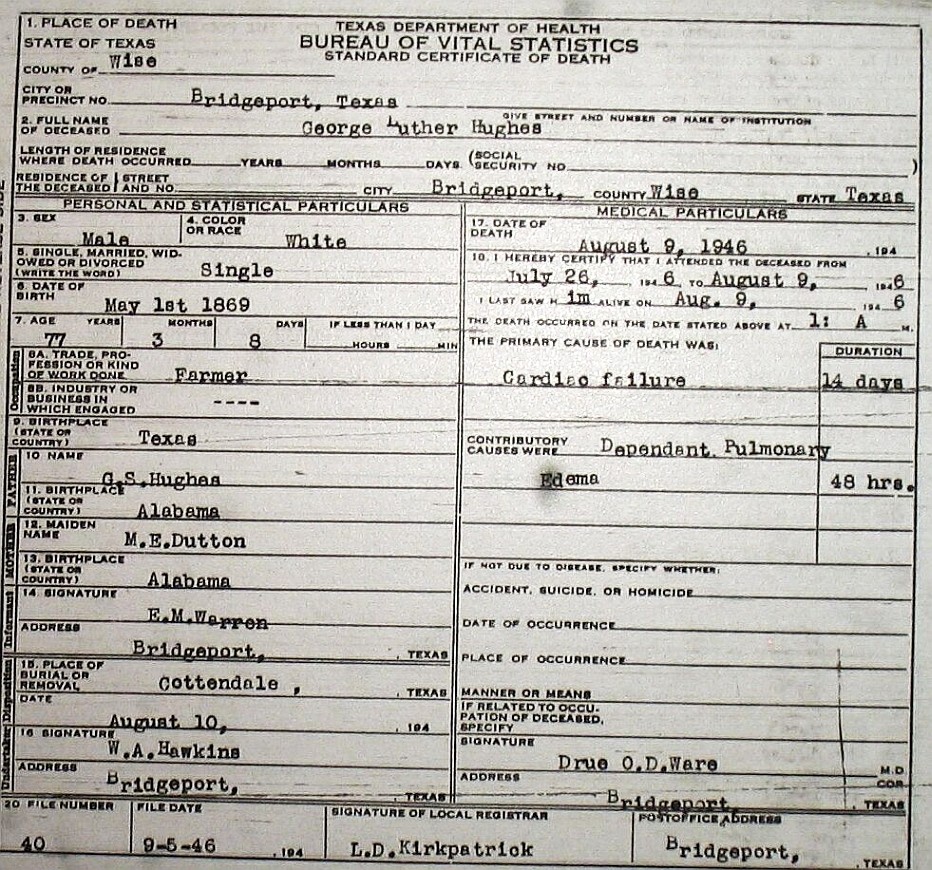 1. PLACE OF DEATH
STATE OF TEXAS
COUNTY OF Wise
TEXAS DEPARTMENT OF HEALTH
BUREAU OF VITAL STATISTICS
STANDARD CERTIFICATE OF DEATH
CITY OR
PRECINCT NO. Bridgeport, Texas
GIVE STREET AND NUMBER OR NAME OF INSTITUTION
2. FULL NAME
OF DECEASED George Luther Hughes
LENGTH OF RESIDENCE
WHERE DEATH OCCURRED YEARS MONTHS DAYS (SOCIAL
SECURITY NO. )
RESIDENCE OF STREET
THE DECEASED AND NO. CITY Bridgeport, COUNTY Wise STATE Texas
PERSONAL AND STATISTICAL PARTICULARS
3. SEX
Male
4. COLOR
OR RACE
White
5. SINGLE, MARRIED, WID-
OWED OR DIVORCED
(WRITE THE WORD) Single
6. DATE OF
BIRTH May 1st 1869
7. AGE YEARS MONTHS DAYS IF LESS THAN 1 DAY
77 3 8 HOURS MIN
Occupation
8A. TRADE, PRO-
FESSION OR KIND
OF WORK DONE Farmer
8B. INDUSTRY OR
BUSINESS IN
WHICH ENGAGED ----
9. BIRTHPLACE
(STATE OR
COUNTRY) Texas
FATHER
10 NAME
G.S.Hughes
11. BIRTHPLACE
(STATE OR
COUNTRY) Alabama
MOTHER
12. MAIDEN
NAME M.E.Dutton
13. BIRTHPLACE
(STATE OR
COUNTRY) Alabama
Informant
14. SIGNATURE
E.M.Warren
ADDRESS
Bridgeport, , TEXAS
Disposition
15. PLACE OF
BURIAL OR
REMOVAL Cottendale , , TEXAS
DATE
August 10, , 194
Undertaker
16 SIGNATURE
W.A.Hawkins
ADDRESS
Bridgeport, , TEXAS
MEDICAL PARTICULARS
17. DATE OF
DEATH August 9, 1946 , 194
18. I HEREBY CERTIFY THAT I ATTENDED THE DECEASED FROM
July 26, 194 6 TO August 9, 194 6
I LAST SAW H im ALIVE ON Aug. 9, 194 6
THE DEATH OCCURRED ON THE DATE STATED ABOVE AT 1: A M.
THE PRIMARY CAUSE OF DEATH WAS: DURATION
Cardiac failure 14 days
CONTRIBUTORY
CAUSES WERE Dependant Pulmonary
Edema 48 hrs.
IF NOT DUE TO DISEASE, SPECIFY WHETHER:
ACCIDENT, SUICIDE, OR HOMICIDE
DATE OF OCCURRENCE
PLACE OF OCCURRENCE
MANNER OR MEANS
IF RELATED TO OCCU-
PATION OF DECEASED,
SPECIFY
SIGNATURE
Drue O.D.Ware M.D.
COR.
ADDRESS
Bridgeport, , TEXAS
20 FILE NUMBER
40
FILE DATE
9-5-46 , 194
SIGNATURE OF LOCAL REGISTRAR
L.D.Kirkpatrick
POSTOFFICE ADDRESS
Bridgeport, , TEXAS